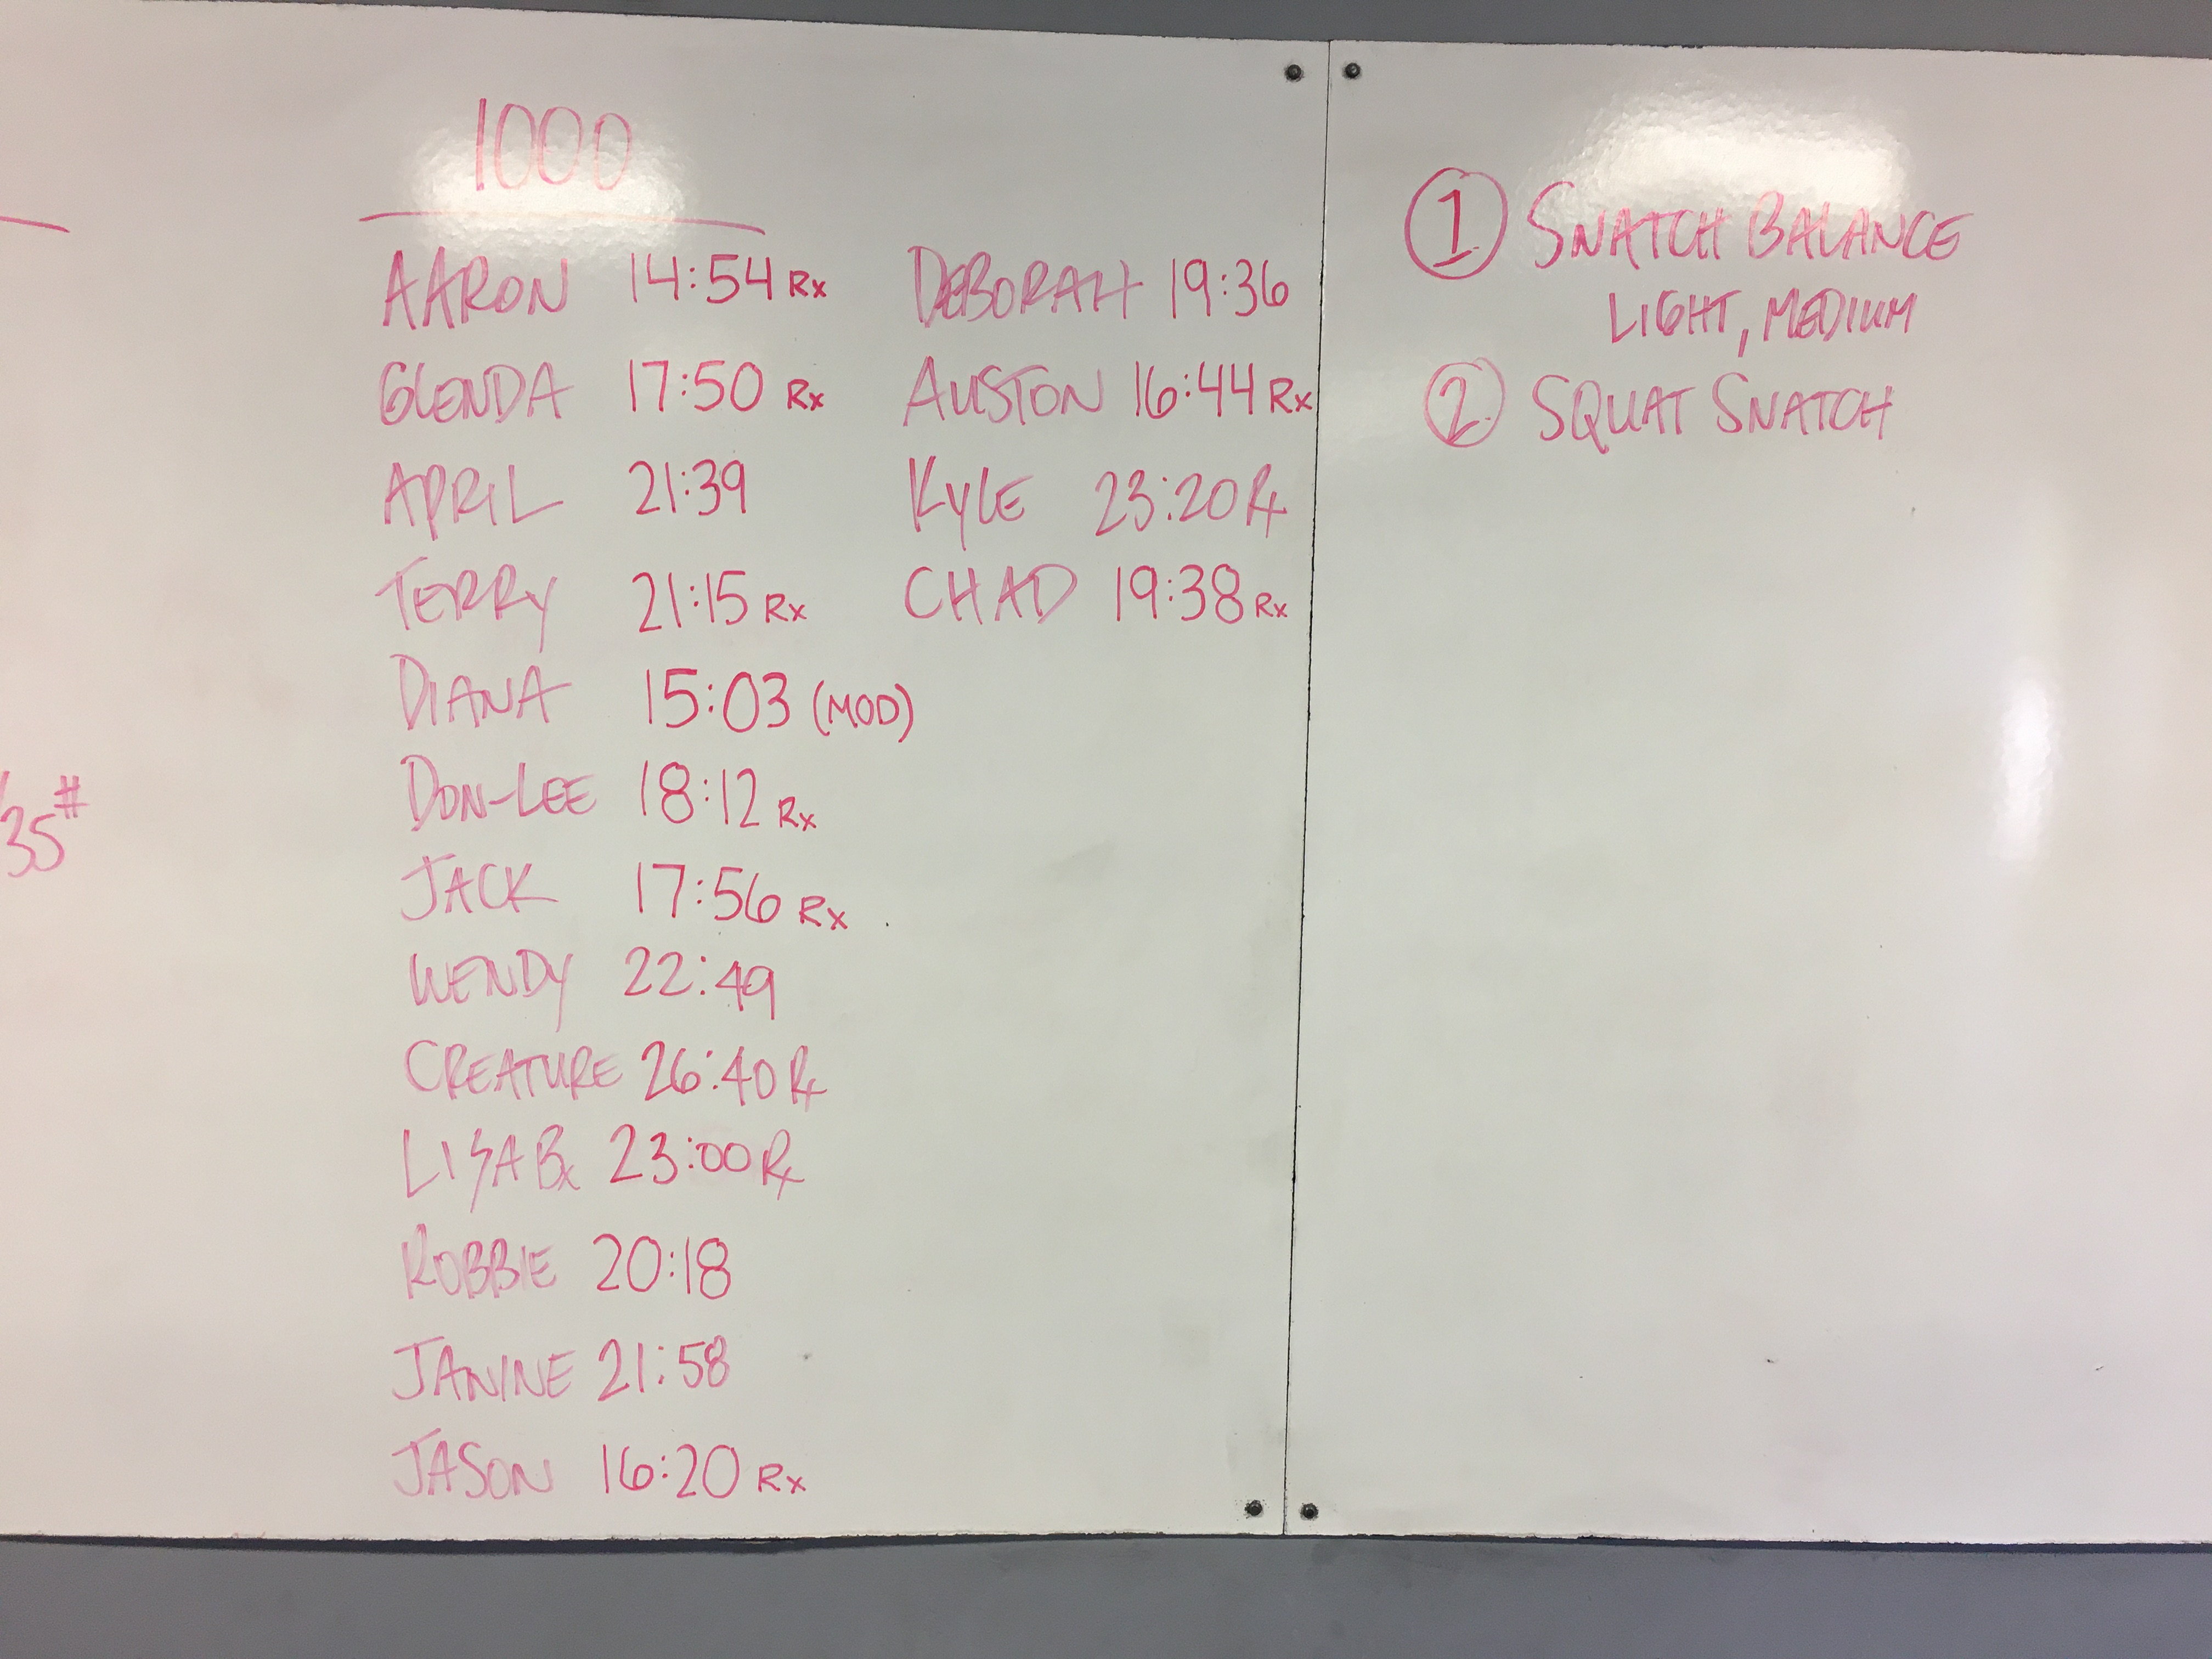 1000
AARON 14:54 Rx
GLENDA 17:50 Rx
APRIL 21:39
TERRY 21:15 Rx
DIANA 15:03 (MOD)
DON-LEE 18:12 Rx
JACK 17:56 Rx
WENDY 22:49
CREATURE 26:40 Rx
LISA 23:00 Rx
ROBBIE 20:18
JANINE 21:58
JASON 16:20 Rx
DEBORAH 19:36
AUSTON 16:44 Rx
KYLE 23:20 Rx
CHAD 19:38 Rx
① SNATCH BALANCE
LIGHT, MEDIUM
② SQUAT SNATCH
35#